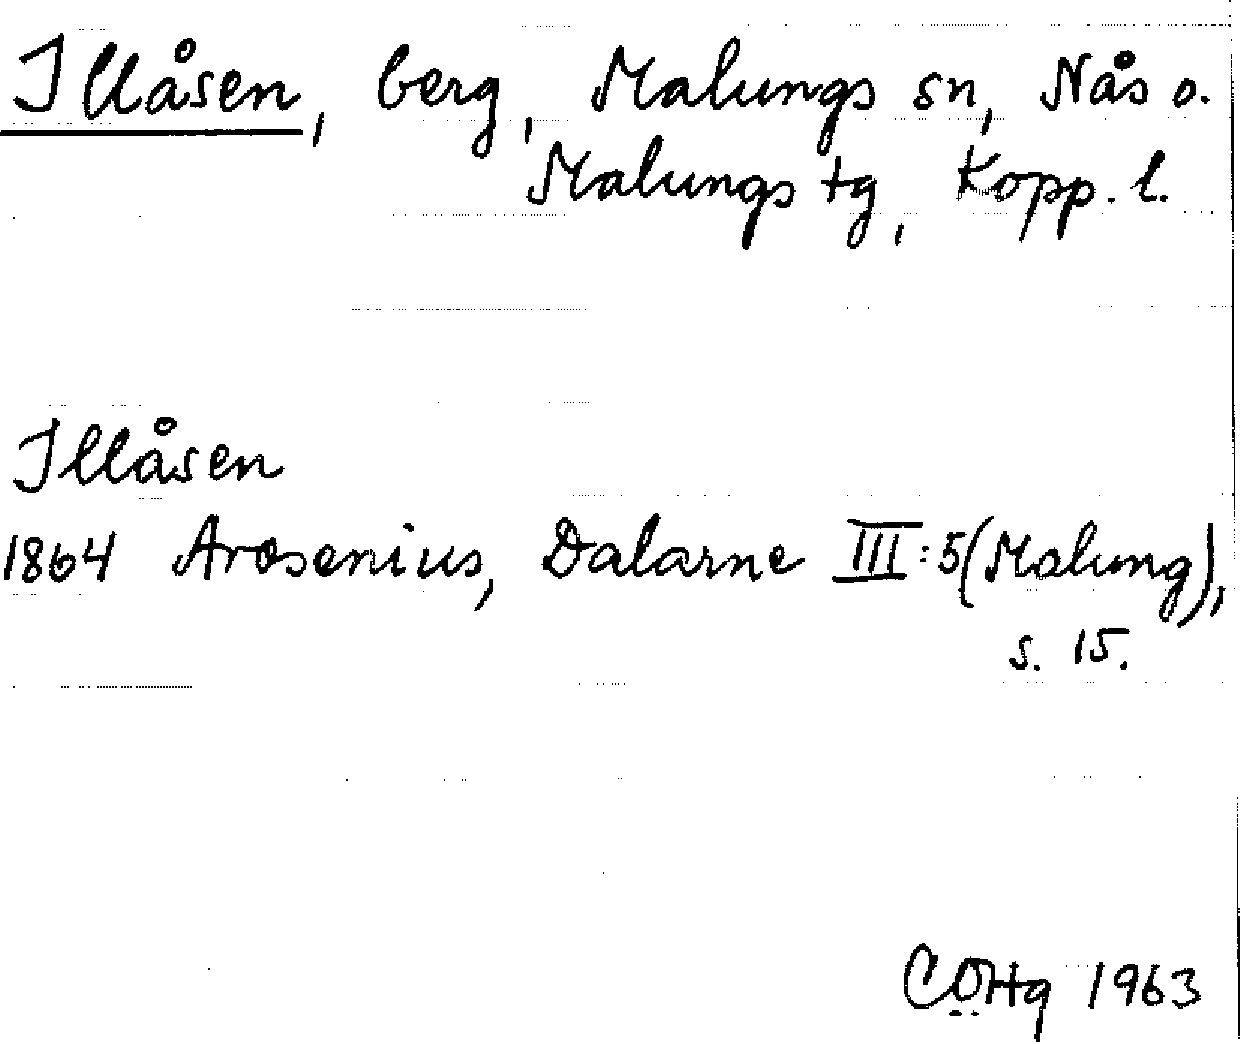 Illåsen, berg, Malungs sn, Nås o.
Malungs tg, Kopp. l.
Illåsen
1864 Arosenius, Dalarne III:5 (Malung),
s. 15.
CÖHg 1963